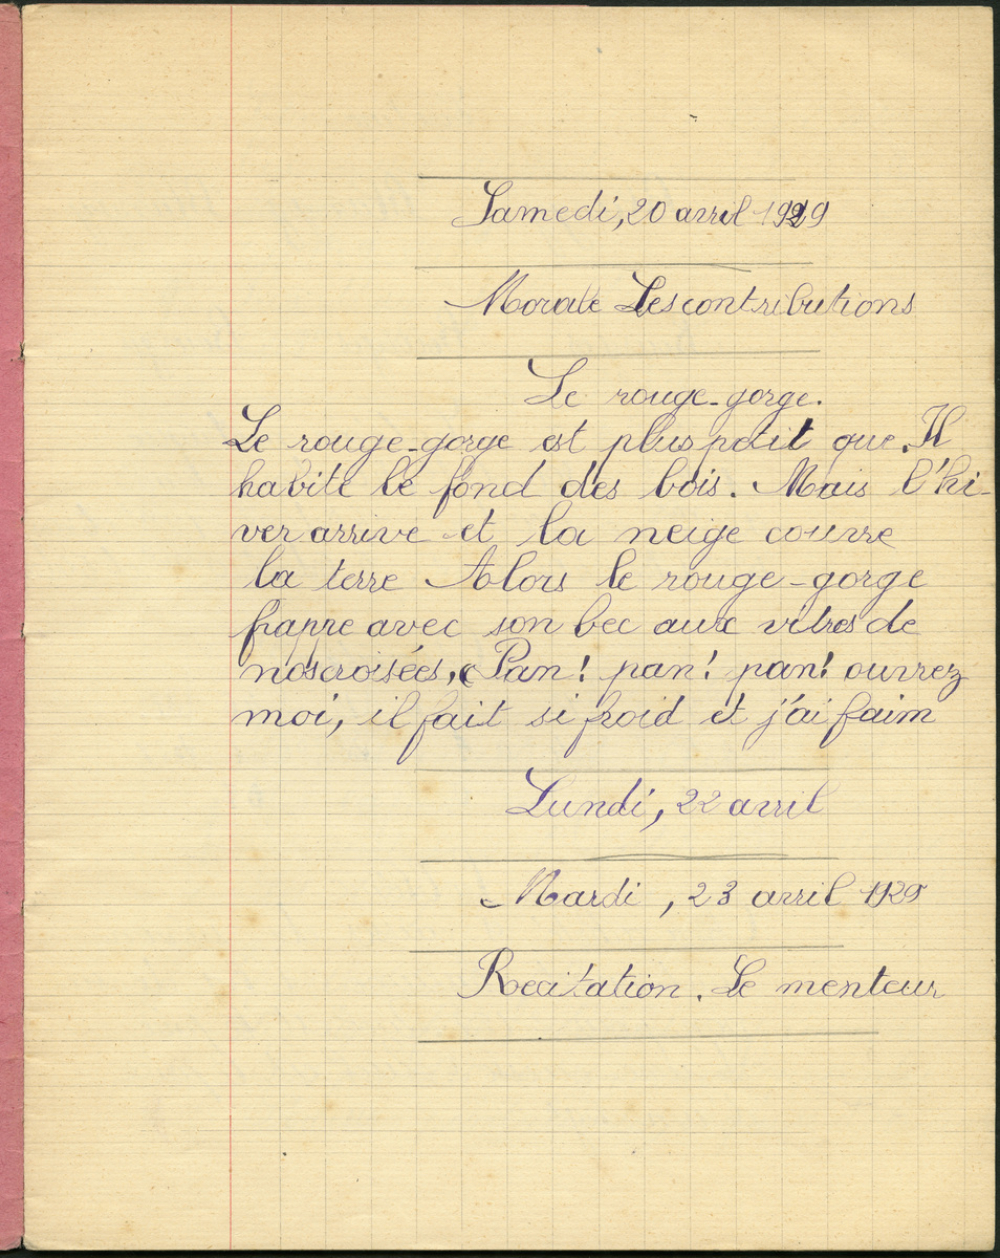 Samedi, 20 avril 1929
Morale Les contributions
Le rouge-gorge.
Le rouge-gorge est plus petit que. Il
habite le fond des bois. Mais l'hi-
ver arrive et la neige couvre
la terre Alors le rouge-gorge
frappe avec son bec aux vitres de
nos croisées, Pan! pan! pan! ouvrez
moi, il fait si froid et j'ai faim
Lundi, 22 avril
Mardi, 23 avril 1929
Recitation. Le menteur